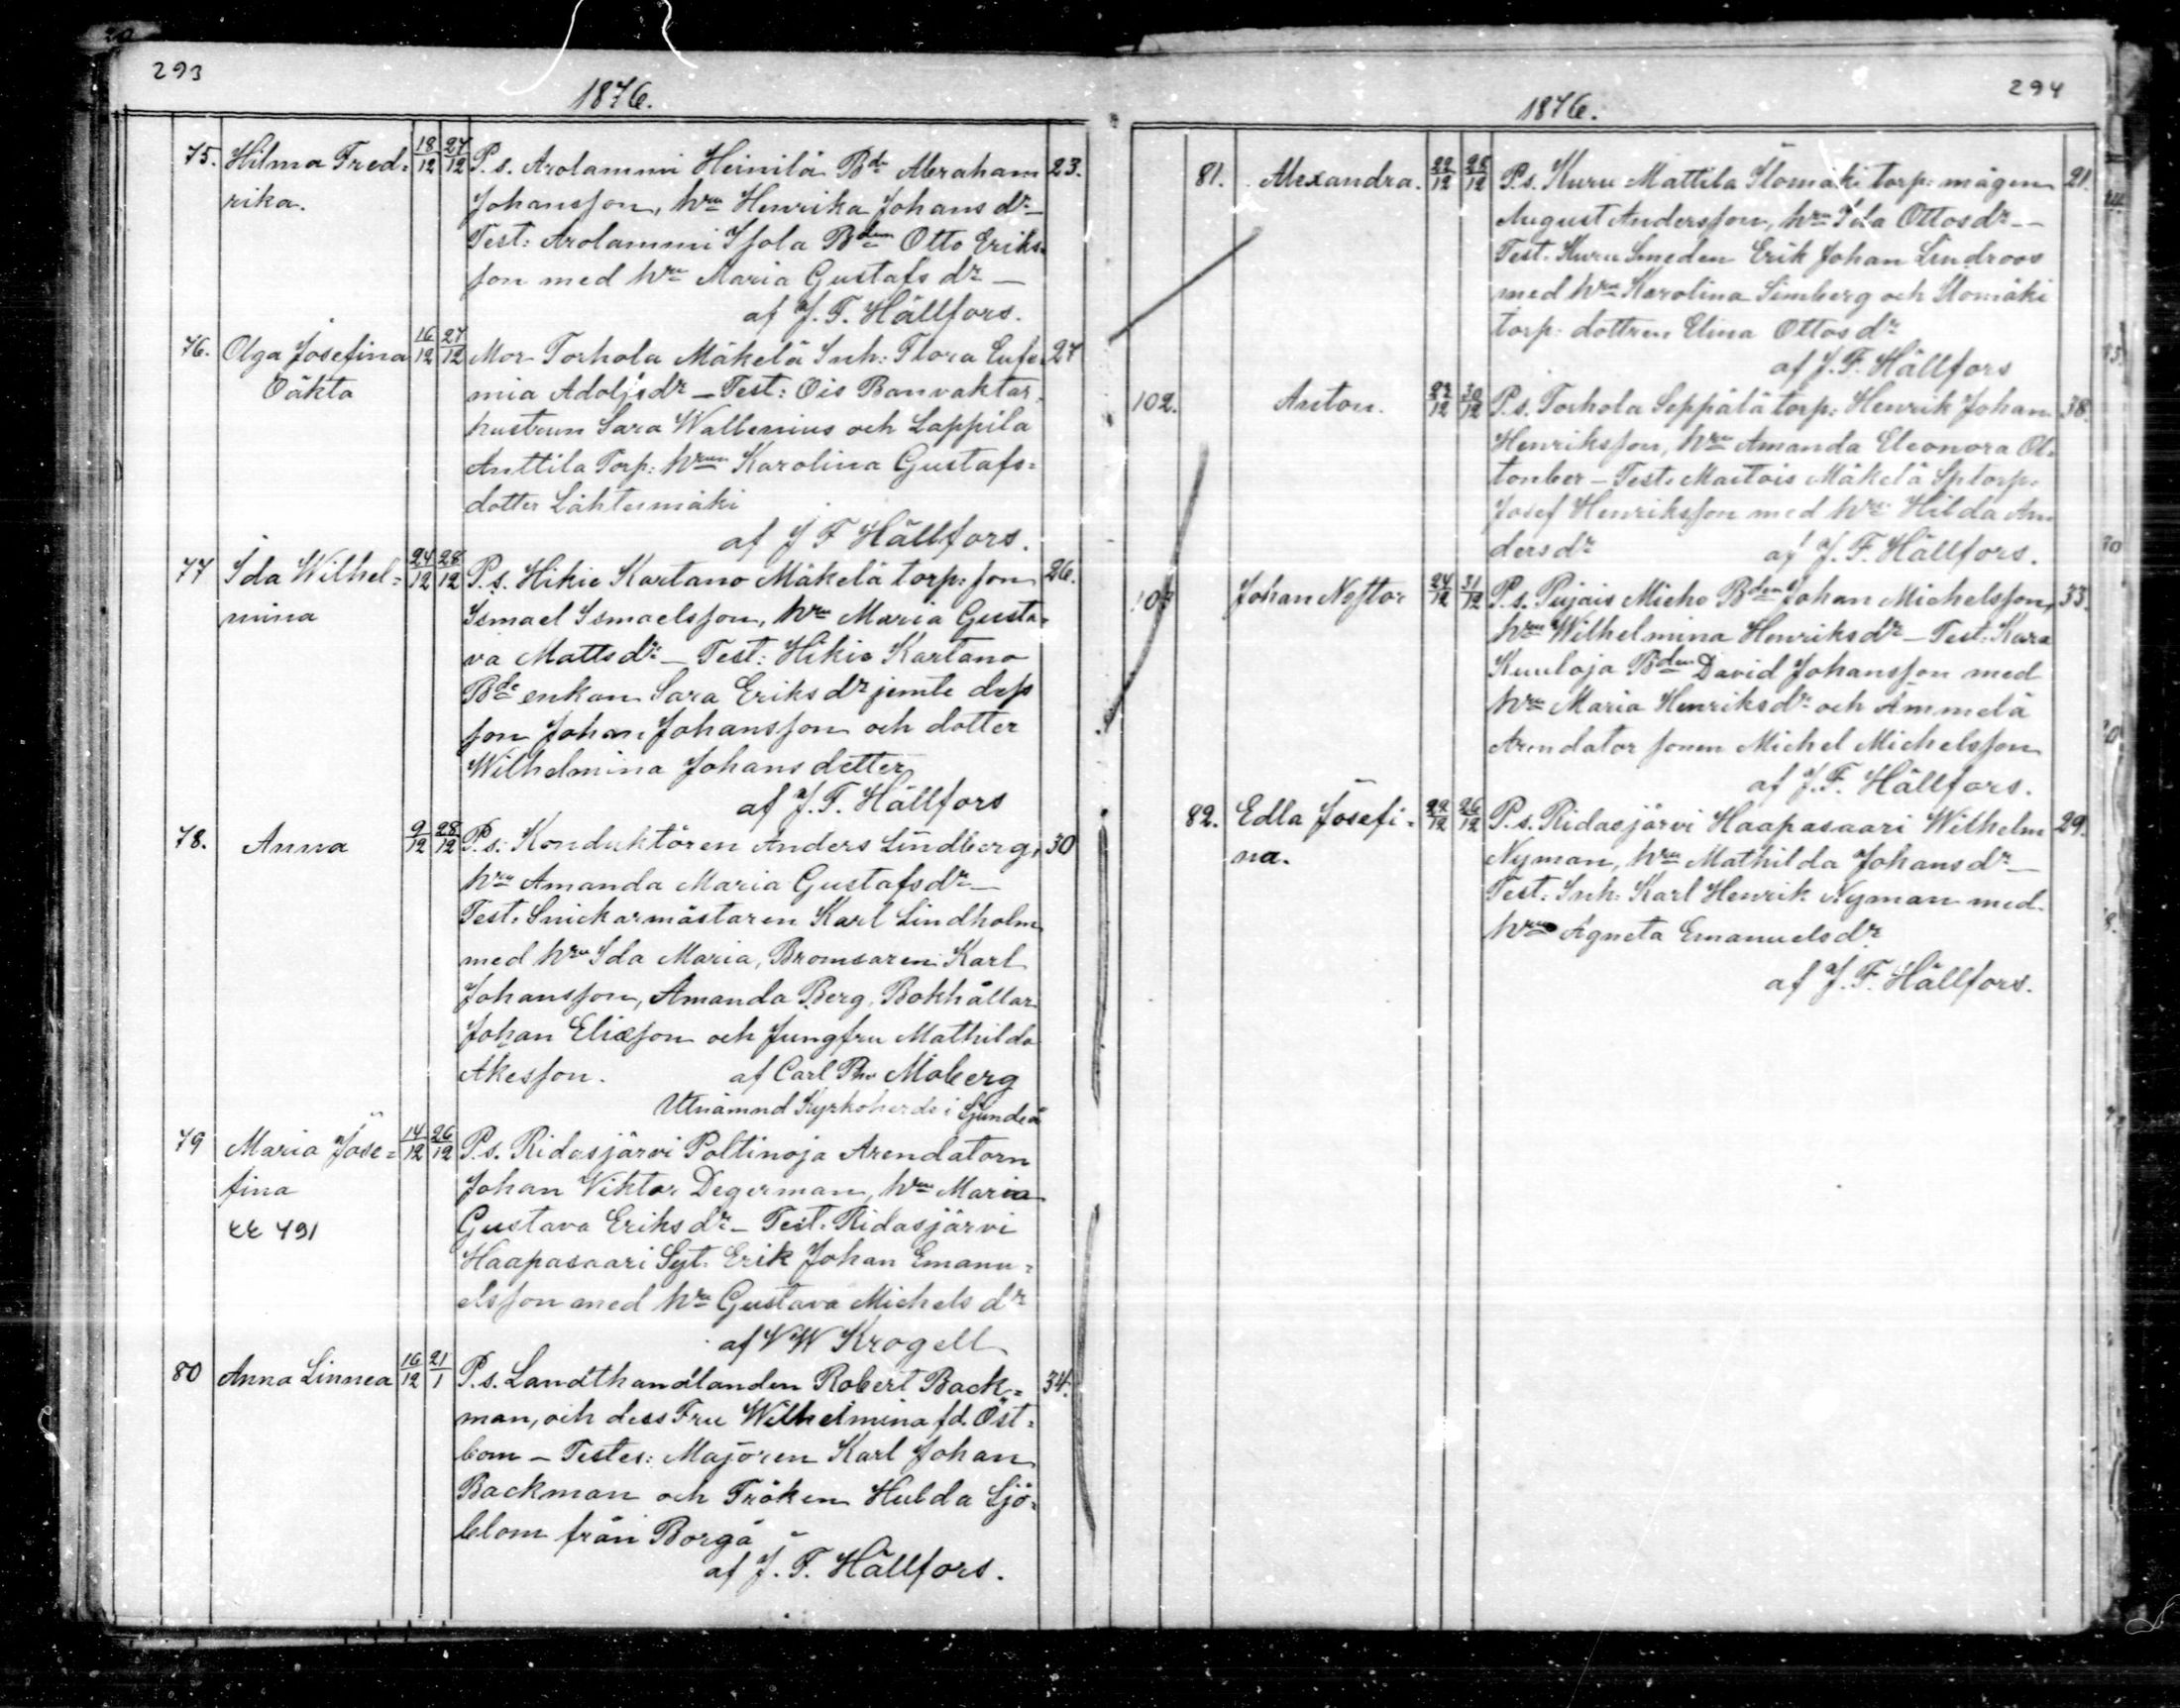 293
1876.
75. Hilma Fred= 18/12 27/12 P. s. Arolammi Heinilä Bdn Abraham 23.
rika. Johansson, hru Henrika Johans dr –
Test: Arolammi Isola Bden Otto Eriks=
son med hru Maria Gustafs dr –
af J. F. Hällfors.
76. Olga Josefina 16/12 27/12 Mor Torhola Mäkelä Inh: Flora Eufe= 27
Oäkta mia Adolfsdr – Test: Ois Banvaktar
hustrun Sara Wallenius och Lappila
Anttila Torp: hrun Karolina Gustafs=
dotter Lähteimäki
af J F Hällfors.
77 Ida Wilhel= 24/12 28/12 P. s. Hikie Kartano Mäkelä torp: son 26.
mina Ismael Ismaelsson, hru Maria Gusta=
va Matts dr – Test: Hikie Kartano
Bde enkan Sara Eriks dr jemte dess
son Johan Johansson och dotter
Wilhelmina Johans dotter
af J. F. Hällfors
78. Anna 9/12 28/12 P. s. Konduktören Anders Lindberg, 30
hru Amanda Maria Gustafsdr –
Test: Snickarmästaren Karl Lindholm
med hru Ida Maria, Bromsaren Karl
Johansson, Amanda Berg, Bokhållar
Johan Eliæson och Jungfru Mathilda
Akesson. af Carl Moberg
Utnämnd Kyrkoherde i Sjundeå
79 Maria Jose= 14/12 26/12 P. s. Ridasjärvi Poltinoja Arendatorn
fina Johan Viktor Degerman, hru Maria
rr 491 Gustava Eriks dr – Test. Ridasjärvi
Haapasaari Syt. Erik Johan Emanu=
elsson med hru Gustava Michels dr
af V W Krogell
80 Anna Linnea 16/12 21/1 P. s. Landthandlanden Robert Back= 34.
man, och dess Fru Wilhelmina fd. Öst=
bom – Testes: Majoren Karl Johan
Backman och Fröken Hulda Sjö=
blom från Borgå
af J. F. Hällfors.
294
1876.
81. Alexandra. 22/12 28/12 P. s. Kuru Mattila Ilomäki torp: mågen 21.
August Andersson, hru Ida Ottosdr –
Test. Kuru Smeden Erik Johan Lindroos
med hru Karolina Simberg och Ilomäki
torp: dottren Elina Ottos dr
af J. F. Hällfors
102. Anton. 23/12 30/12 P. s. Torhola Seppälä torp: Henrik Johan 38.
Henriksson, hru Amanda Eleonora Ok=
tonber – Test. Martois Mäkelä Sptorp.
Josef Henriksson med hru Hilda An
ders dr af J. F. Hällfors.
103 Johan Nestor 24/12 31/12 P. s. Pujais Micho Bden Johan Michelsson, 33.
hru Wilhelmina Henriksdr – Test: Kara
Kuuloja Bden David Johansson med
hru Maria Henriks dr och Ammelä
Arendator sonen Michel Michelsson
af J. F. Hällfors.
82. Edla Josefi= 22/12 26/12 P. s. Ridasjärvi Haapasaari Wilhelm 29.
na. Nyman, hru Mathilda Johans dr –
Test. Inh: Karl Henrik Nyman med
hru Agneta Emanuels dr
af J. F. Hällfors.